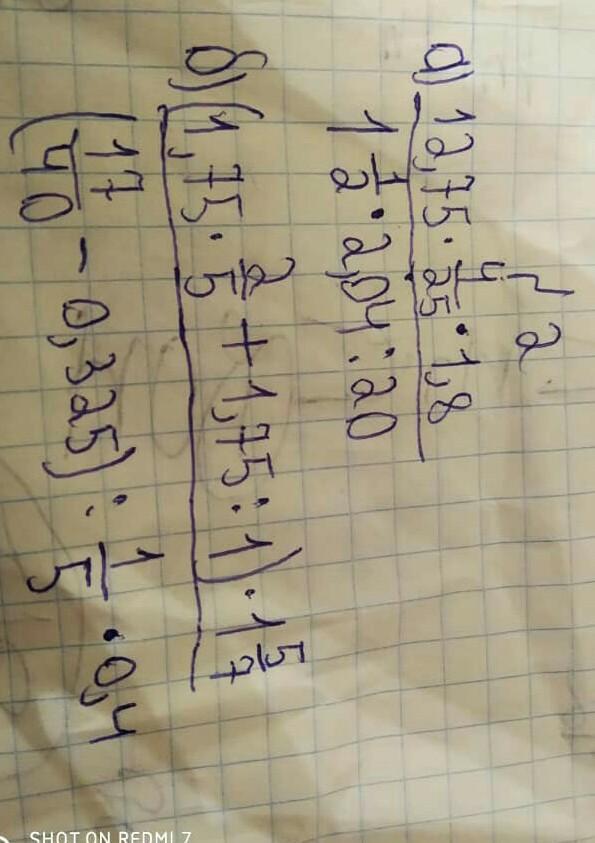 √2
а) 12,75 · 4/25 · 1,8
1 1/2 · 2,04 : 20
б) (1,75 · 2/5 + 1,75 : 1) · 1 5/7
(17/40 − 0,325) : 1/5 · 0,4
SHOT ON REDMI 7